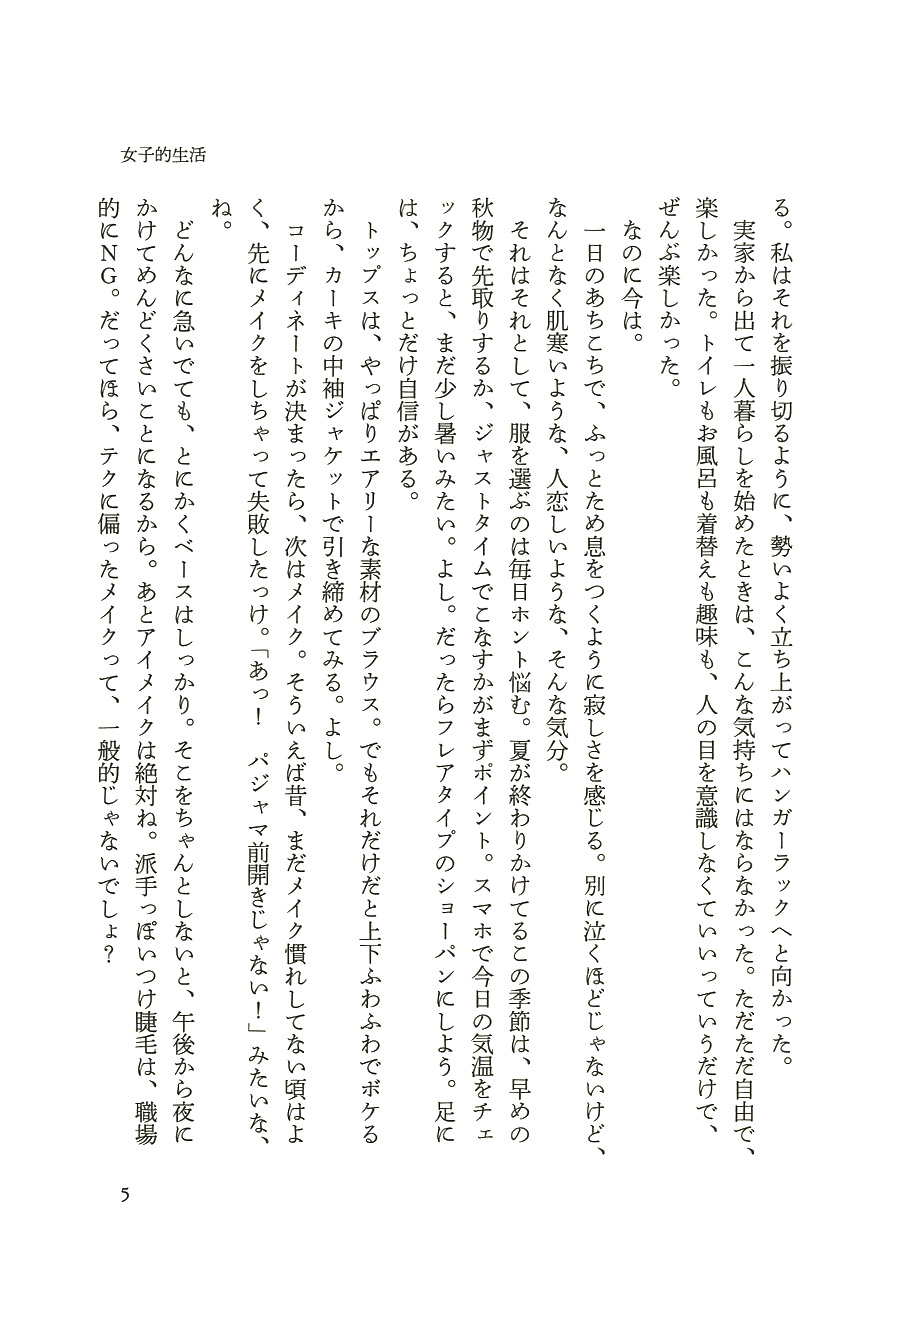 女子的生活
る。私はそれを振り切るように、勢いよく立ち上がってハンガーラックへと向かった。
実家から出て一人暮らしを始めたときは、こんな気持ちにはならなかった。ただただ自由で、
楽しかった。トイレもお風呂も着替えも趣味も、人の目を意識しなくていいっていうだけで、
ぜんぶ楽しかった。
なのに今は。
一日のあちこちで、ふっとため息をつくように寂しさを感じる。別に泣くほどじゃないけど、
なんとなく肌寒いような、人恋しいような、そんな気分。
それはそれとして、服を選ぶのは毎日ホント悩む。夏が終わりかけてるこの季節は、早めの
秋物で先取りするか、ジャストタイムでこなすかがまずポイント。スマホで今日の気温をチェ
ックすると、まだ少し暑いみたい。よし。だったらフレアタイプのショーパンにしよう。足に
は、ちょっとだけ自信がある。
トップスは、やっぱりエアリーな素材のブラウス。でもそれだけだと上下ふわふわでボケる
から、カーキの中袖ジャケットで引き締めてみる。よし。
コーディネートが決まったら、次はメイク。そういえば昔、まだメイク慣れしてない頃はよ
く、先にメイクをしちゃって失敗したっけ。「あっ！　パジャマ前開きじゃない！」みたいな、
ね。
どんなに急いでても、とにかくベースはしっかり。そこをちゃんとしないと、午後から夜に
かけてめんどくさいことになるから。あとアイメイクは絶対ね。派手っぽいつけ睫毛は、職場
的にＮＧ。だってほら、テクに偏ったメイクって、一般的じゃないでしょ？
5